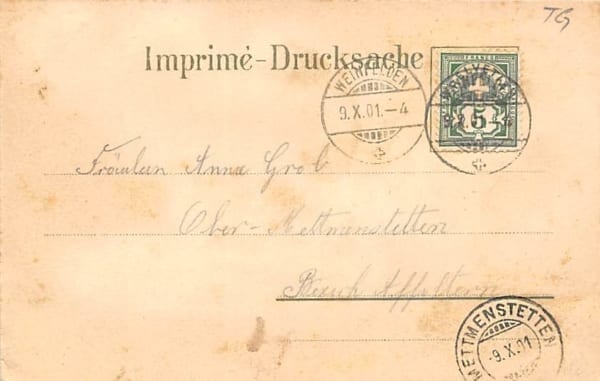 TG
Imprimé-Drucksache
FRANCO
WEINFELDEN
9.X.01.-4
WEINFELDEN
9.X.01.-4
5
Fräulein Anna Grob
Ober-Mettmenstetten
Bezirk Affoltern
METTMENSTETTEN
-9.X.01